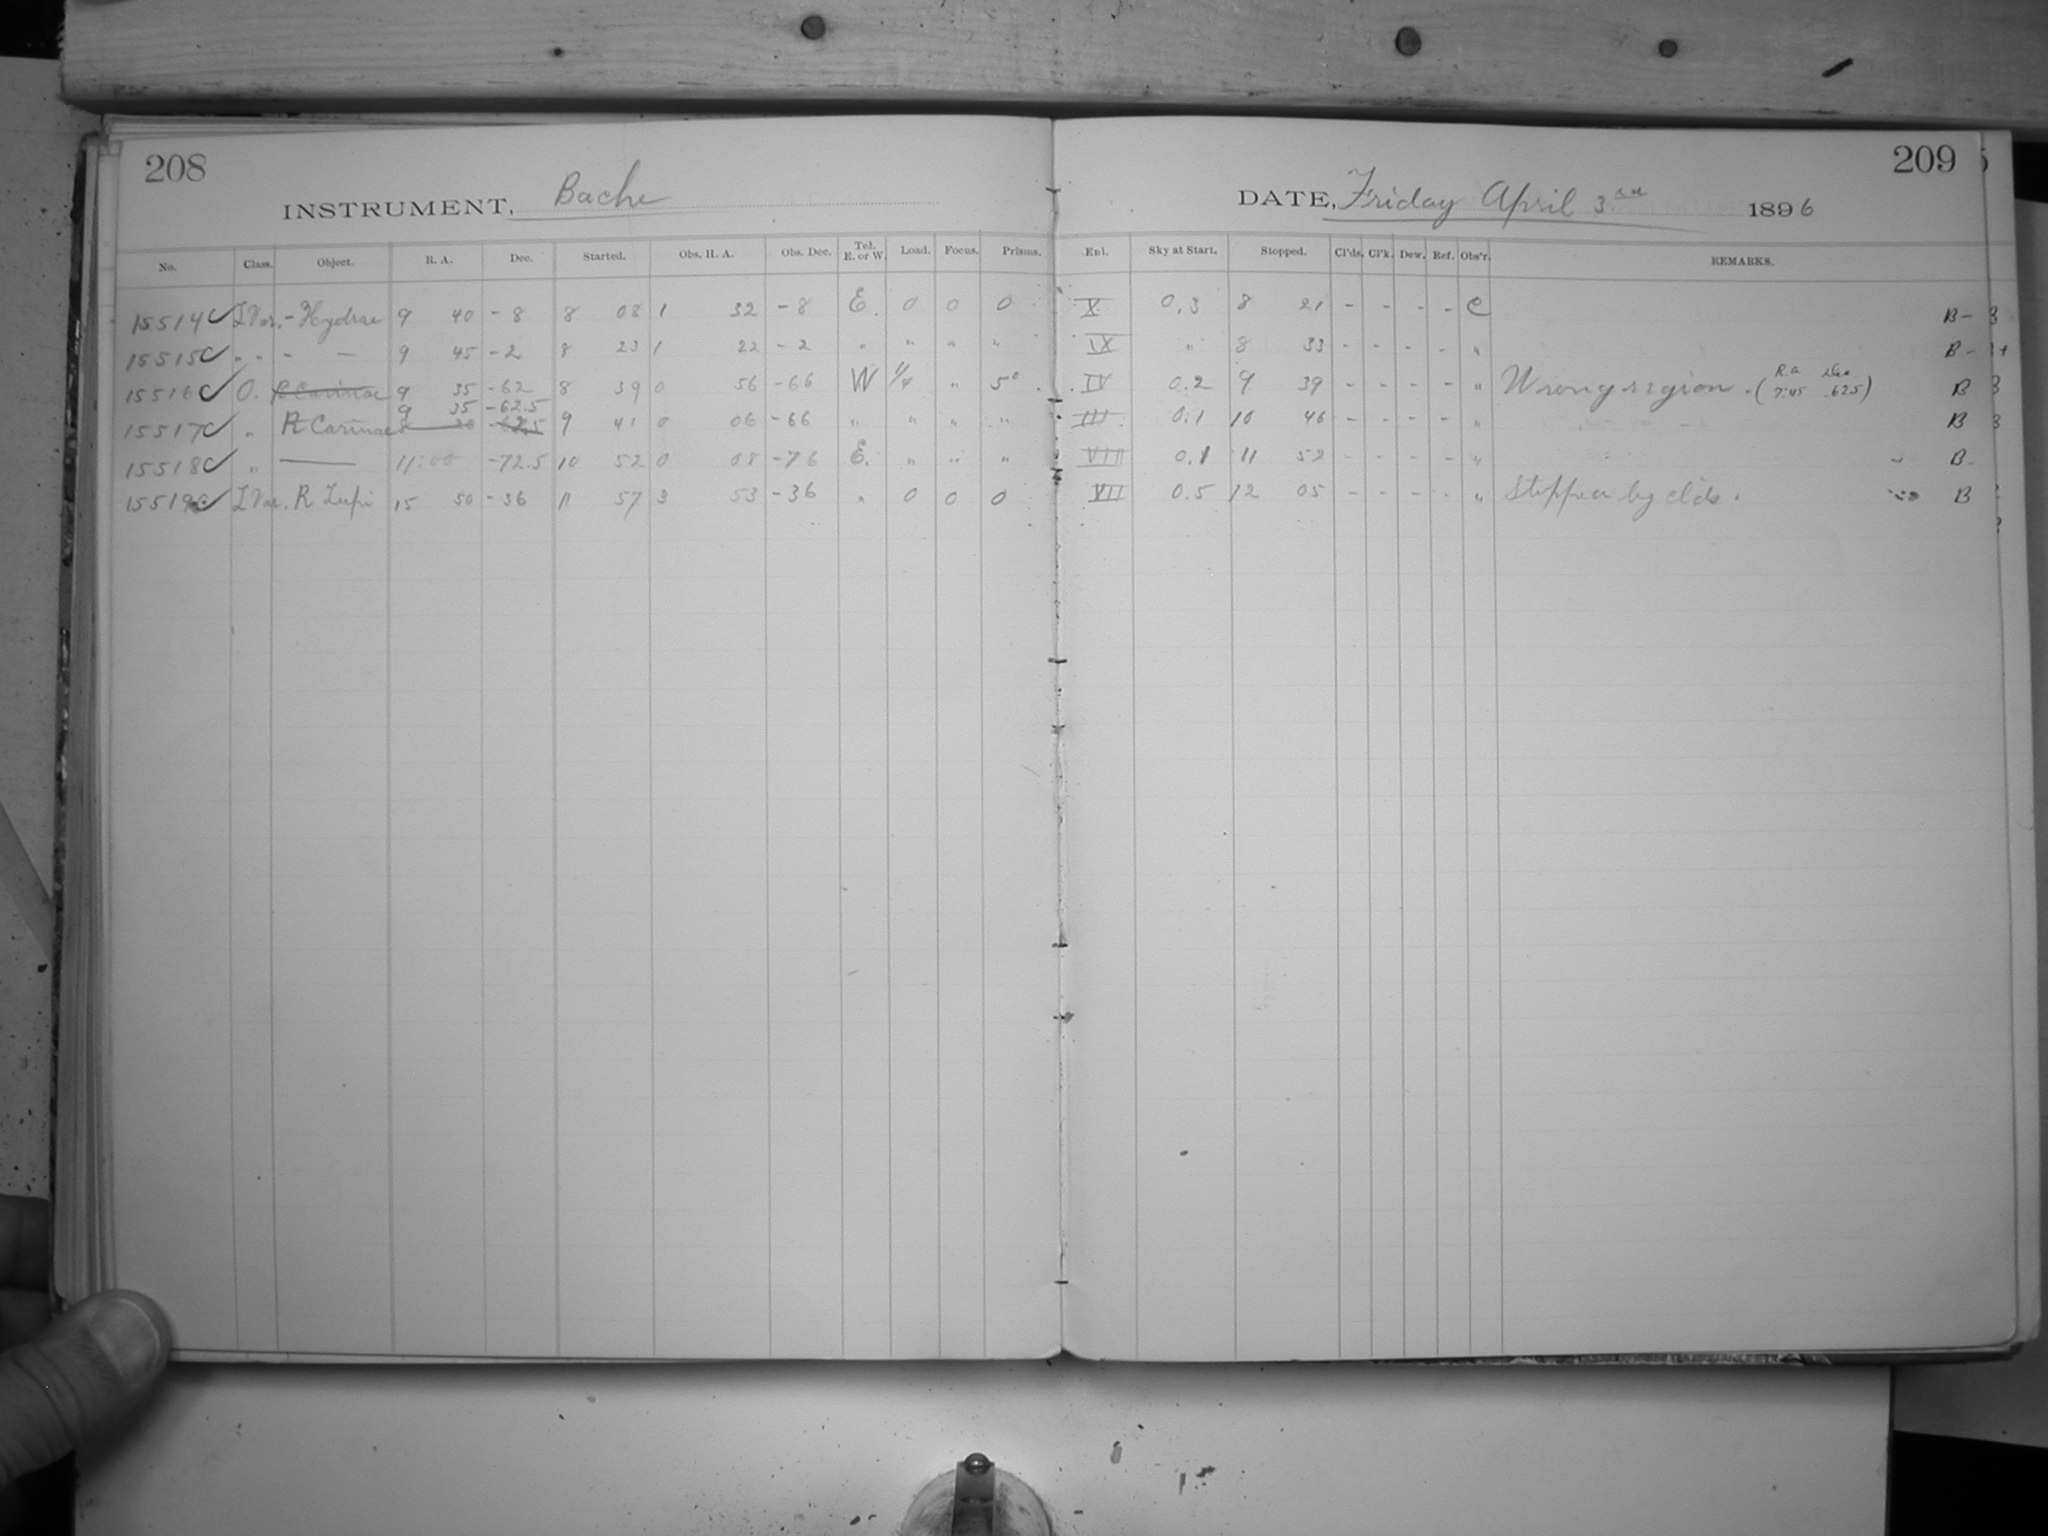 208
INSTRUMENT, Bache
No. Class. Object. R. A. Dec. Started. Obs. H. A. Obs. Dec. Tel. E. or W. Load. Focus. Prisms.
15514 I Var. - Hydrae 9 40 - 8 8 08 1 32 - 8 E. 0 0 0
15515 " " - — 9 45 - 2 8 23 1 22 - 2 " " " "
15516 O. R Carinae 9 35 - 62 8 39 0 56 - 66 W 1/4 " 5°
9 35 - 62.5
15517 " R Carinae - 62.5 9 41 0 06 - 66 " " " "
15518 " — 11:00 -72.5 10 52 0 08 - 76 E. " " "
15519 I Var. R Lupi 15 50 - 36 11 57 3 53 - 36 " 0 0 0
209
DATE, Friday April 3rd 1896
Enl. Sky at Start. Stopped. Cl'ds. Cl'k. Dew. Ref. Obs'r. REMARKS.
X 0.3 8 21 - - - - C B -
IX " 8 33 - - - - " B -
R.a Dec
IV 0.2 9 39 - - - - " Wrong region. (7:45 .625) B
III 0.1 10 46 - - - - " B
VIII 0.1 11 52 - - - - " B.
VII 0.5 12 05 - - - - " Stopped by clds. B